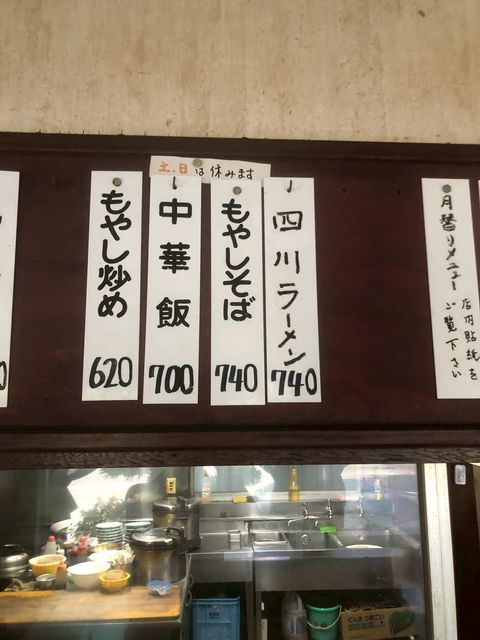 土.日は休みます
もやし炒め
620
中華飯
700
もやしそば
740
四川ラーメン
740
月替りメニュー
店内貼紙を
ご覧下さい